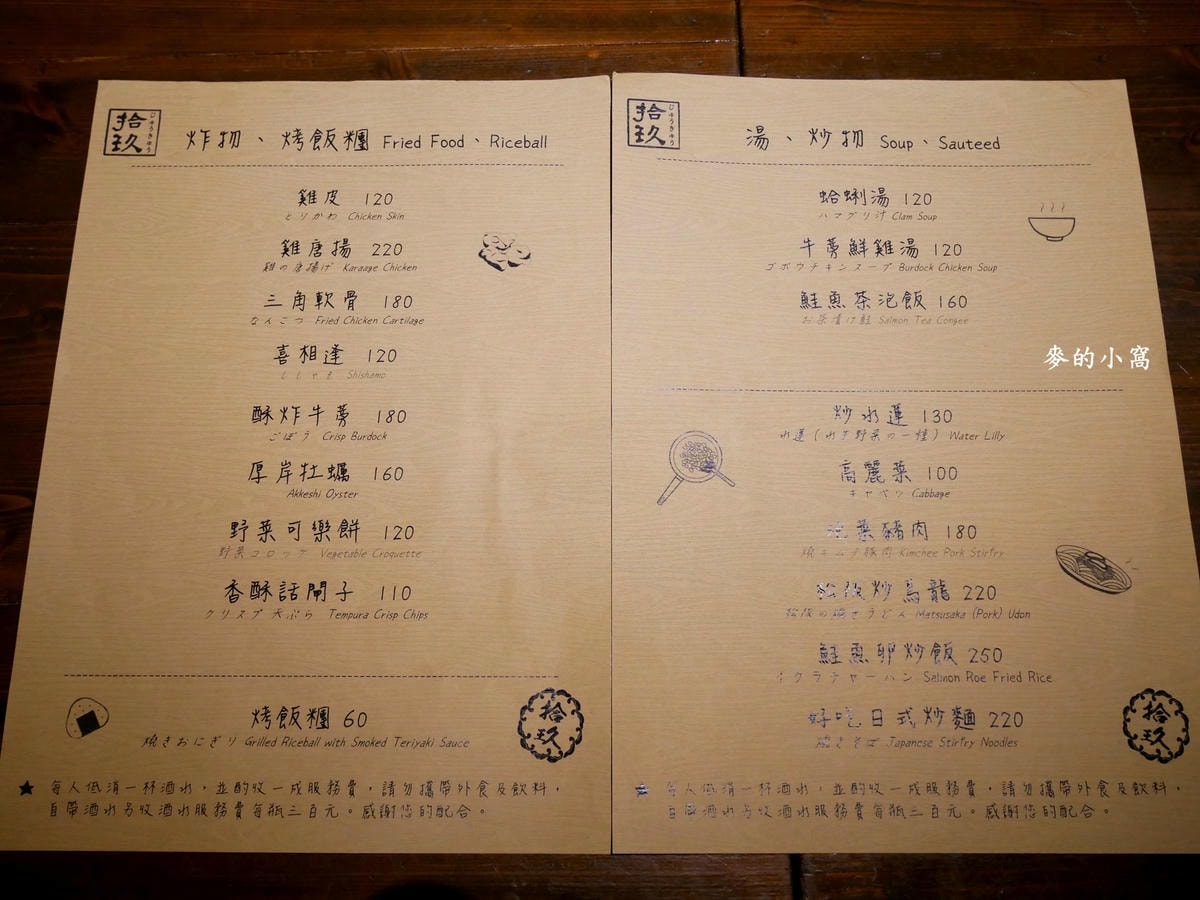 拾玖
じゅうきゅう
炸物、烤飯糰 Fried Food、Riceball
雞皮 120
とりかわ Chicken Skin
雞唐揚 220
雞の唐揚げ Karaage Chicken
三角軟骨 180
なんこつ Fried Chicken Cartilage
喜相逢 120
ししゃも Shishamo
酥炸牛蒡 180
ごぼう Crisp Burdock
厚岸牡蠣 160
Akkeshi Oyster
野菜可樂餅 120
野菜コロッケ Vegetable Croquette
香酥話閘子 110
クリスプ天ぷら Tempura Crisp Chips
烤飯糰 60
燒きおにぎり Grilled Riceball with Smoked Teriyaki Sauce
拾玖
★ 每人低消一杯酒水，並酌收一成服務費，請勿攜帶外食及飲料，
自帶酒水另收酒水服務費每瓶三百元。感謝您的配合。
拾玖
じゅうきゅう
湯、炒物 Soup、Sauteed
蛤蜊湯 120
ハマグリ汁 Clam Soup
牛蒡鮮雞湯 120
ゴボウチキンスープ Burdock Chicken Soup
鮭魚茶泡飯 160
お茶漬け鮭 Salmon Tea Congee
麥的小窩
炒水蓮 130
水蓮（水生野菜の一種） Water Lilly
高麗菜 100
キャベツ Cabbage
泡菜豬肉 180
燒キムチ豚肉 Kimchee Pork Stirfry
松阪炒烏龍 220
松阪の燒きうどん Matsusaka (Pork) Udon
鮭魚卵炒飯 250
イクラチャーハン Salmon Roe Fried Rice
好吃日式炒麵 220
燒きそば Japanese Stirfry Noodles
拾玖
★ 每人低消一杯酒水，並酌收一成服務費，請勿攜帶外食及飲料，
自帶酒水另收酒水服務費每瓶三百元。感謝您的配合。